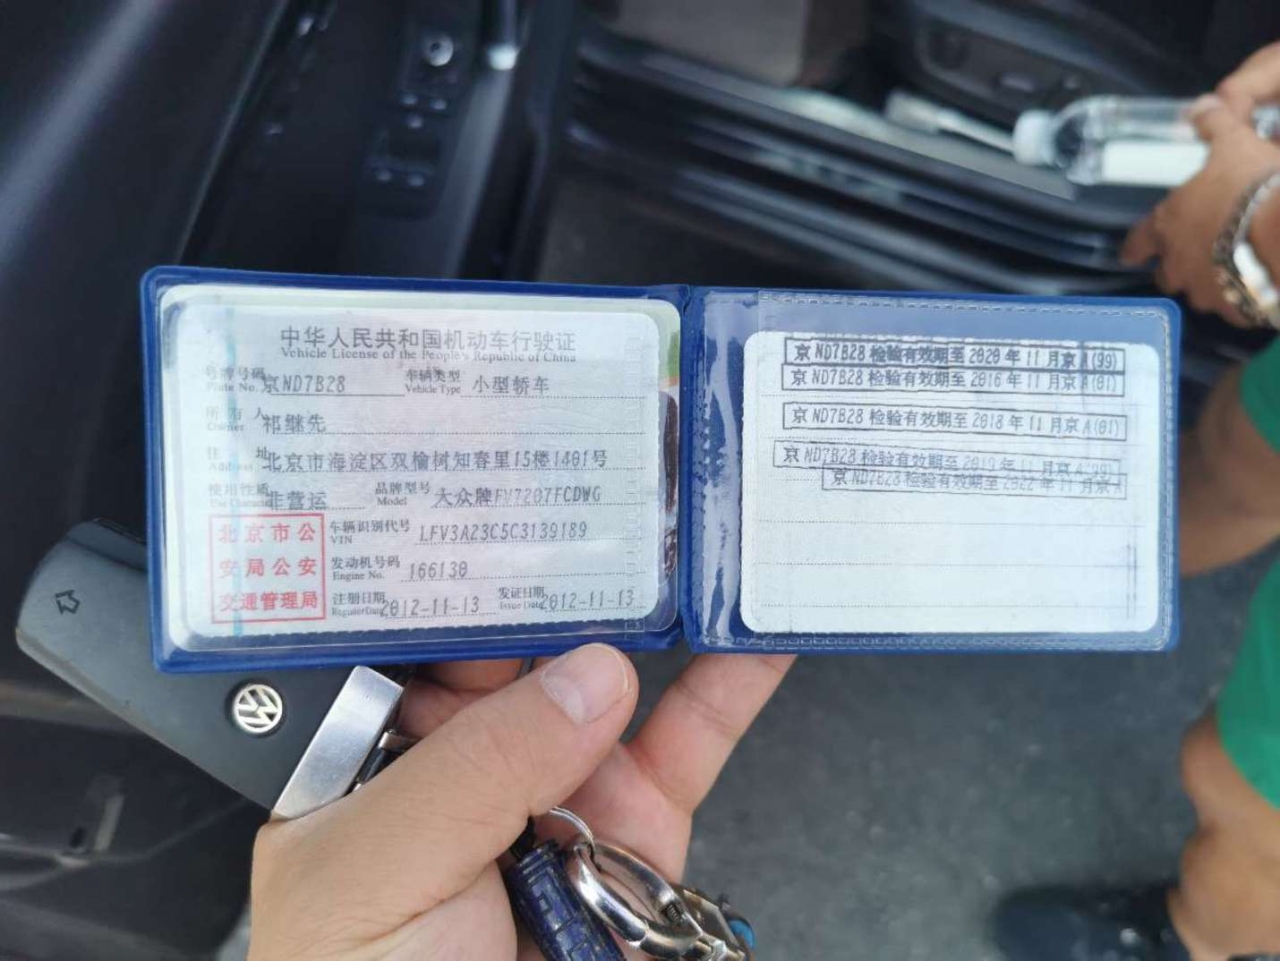 中华人民共和国机动车行驶证
Vehicle License of the People's Republic of China
号牌号码 Plate No. 京ND7B28 车辆类型 Vehicle Type 小型轿车
所有人 Owner 祁继先
住址 Address 北京市海淀区双榆树知春里15楼1401号
使用性质 Use Character 非营运 品牌型号 Model 大众牌FV7207FCDWG
北京市公
安局公安
交通管理局
车辆识别代号 VIN LFV3A23C5C3139189
发动机号码 Engine No. 166130
注册日期 Register Date 2012-11-13 发证日期 Issue Date 2012-11-13
京ND7B28 检验有效期至 2020 年 11 月京 A(99)
京 ND7B28 检验有效期至 2016 年 11 月京 A(01)
京 ND7B28 检验有效期至 2018 年 11 月京 A(01)
京 ND7B28 检验有效期至 2019 年 11 月京 A(99)
京 ND7B28 检验有效期至 2022 年 11 月京 A